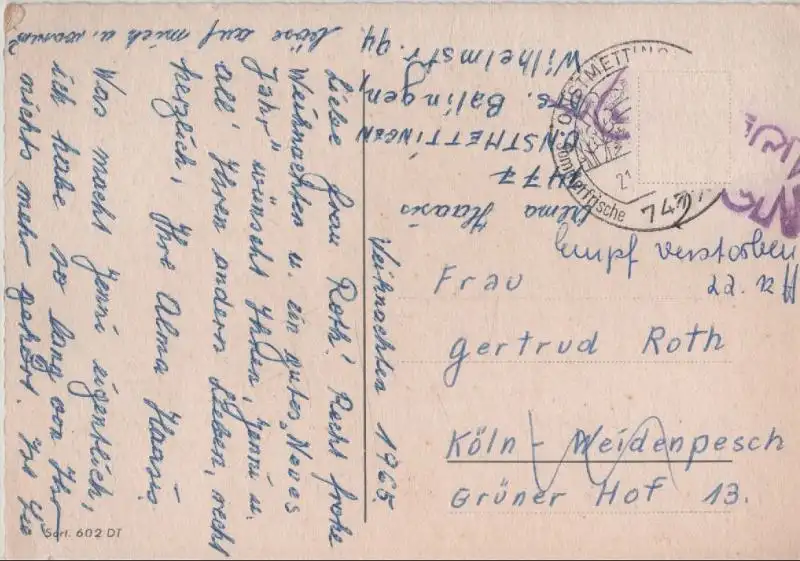 Weihnachten 1965
Liebe Frau Roth! Recht frohe
Weihnachten u. ein gutes „Neues
Jahr" wünscht Ihnen, Jenni u.
all' Ihren andern Lieben, recht
herzlich, Ihre Alma Haasis.
Was macht Jenni eigentlich,
ich habe so lang von Ihr
nichts mehr gehört. Ist Sie
böse auf mich u. warum?
Alma Haasis
7477
ONSTMETTINGEN
Krs. Balingen,
Wilhelmstr. 94
ONSTMETTING
Sommerfrische
747
21
Empf verstorben
22.12
Frau
Gertrud Roth
Köln - Weidenpesch
Grüner Hof 13.
Sort. 602 DT